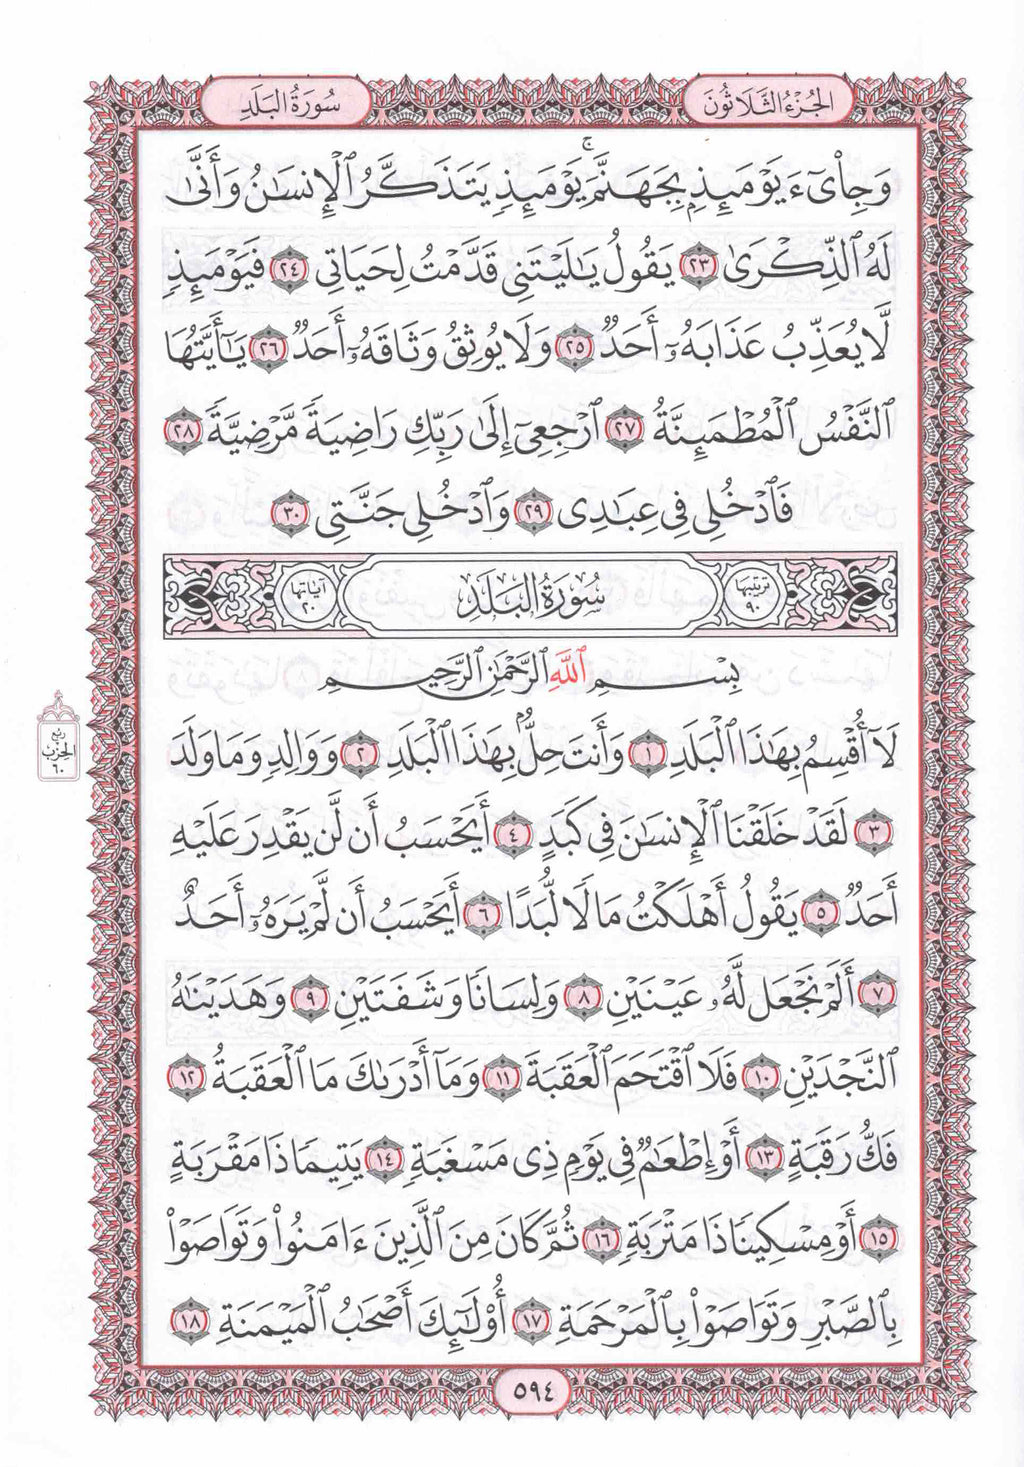 الجُزْءُ الثَّلَاثُونَ
سُورَةُ البَلَدِ
وَجِاْيٓءَ يَوْمَئِذِۭ بِجَهَنَّمَۚ يَوْمَئِذٖ يَتَذَكَّرُ ٱلْإِنسَٰنُ وَأَنَّىٰ
لَهُ ٱلذِّكْرَىٰ ٢٣ يَقُولُ يَٰلَيْتَنِي قَدَّمْتُ لِحَيَاتِي ٢٤ فَيَوْمَئِذٖ
لَّا يُعَذِّبُ عَذَابَهُۥٓ أَحَدٞ ٢٥ وَلَا يُوثِقُ وَثَاقَهُۥٓ أَحَدٞ ٢٦ يَٰٓأَيَّتُهَا
ٱلنَّفْسُ ٱلْمُطْمَئِنَّةُ ٢٧ ٱرْجِعِيٓ إِلَىٰ رَبِّكِ رَاضِيَةٗ مَّرْضِيَّةٗ ٢٨
فَٱدْخُلِي فِي عِبَٰدِي ٢٩ وَٱدْخُلِي جَنَّتِي ٣٠
ترتيبها ٩٠
سُورَةُ البَلَدِ
آياتها ٢٠
بِسْمِ ٱللَّهِ ٱلرَّحْمَٰنِ ٱلرَّحِيمِ
لَآ أُقْسِمُ بِهَٰذَا ٱلْبَلَدِ ١ وَأَنتَ حِلُّۢ بِهَٰذَا ٱلْبَلَدِ ٢ وَوَالِدٖ وَمَا وَلَدَ
٣ لَقَدْ خَلَقْنَا ٱلْإِنسَٰنَ فِي كَبَدٍ ٤ أَيَحْسَبُ أَن لَّن يَقْدِرَ عَلَيْهِ
أَحَدٞ ٥ يَقُولُ أَهْلَكْتُ مَالٗا لُّبَدًا ٦ أَيَحْسَبُ أَن لَّمْ يَرَهُۥٓ أَحَدٌ
٧ أَلَمْ نَجْعَل لَّهُۥ عَيْنَيْنِ ٨ وَلِسَانٗا وَشَفَتَيْنِ ٩ وَهَدَيْنَٰهُ
ٱلنَّجْدَيْنِ ١٠ فَلَا ٱقْتَحَمَ ٱلْعَقَبَةَ ١١ وَمَآ أَدْرَىٰكَ مَا ٱلْعَقَبَةُ ١٢
فَكُّ رَقَبَةٍ ١٣ أَوْ إِطْعَٰمٞ فِي يَوْمٖ ذِي مَسْغَبَةٖ ١٤ يَتِيمٗا ذَا مَقْرَبَةٍ
١٥ أَوْ مِسْكِينٗا ذَا مَتْرَبَةٖ ١٦ ثُمَّ كَانَ مِنَ ٱلَّذِينَ ءَامَنُوا۟ وَتَوَاصَوْا۟
بِٱلصَّبْرِ وَتَوَاصَوْا۟ بِٱلْمَرْحَمَةِ ١٧ أُو۟لَٰٓئِكَ أَصْحَٰبُ ٱلْمَيْمَنَةِ ١٨
ربع
الحزب
٦٠
٥٩٤